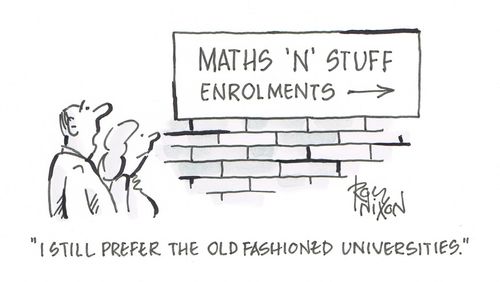 MATHS 'N' STUFF
ENROLMENTS →
Roy
NIXON
"I STILL PREFER THE OLD FASHIONED UNIVERSITIES."